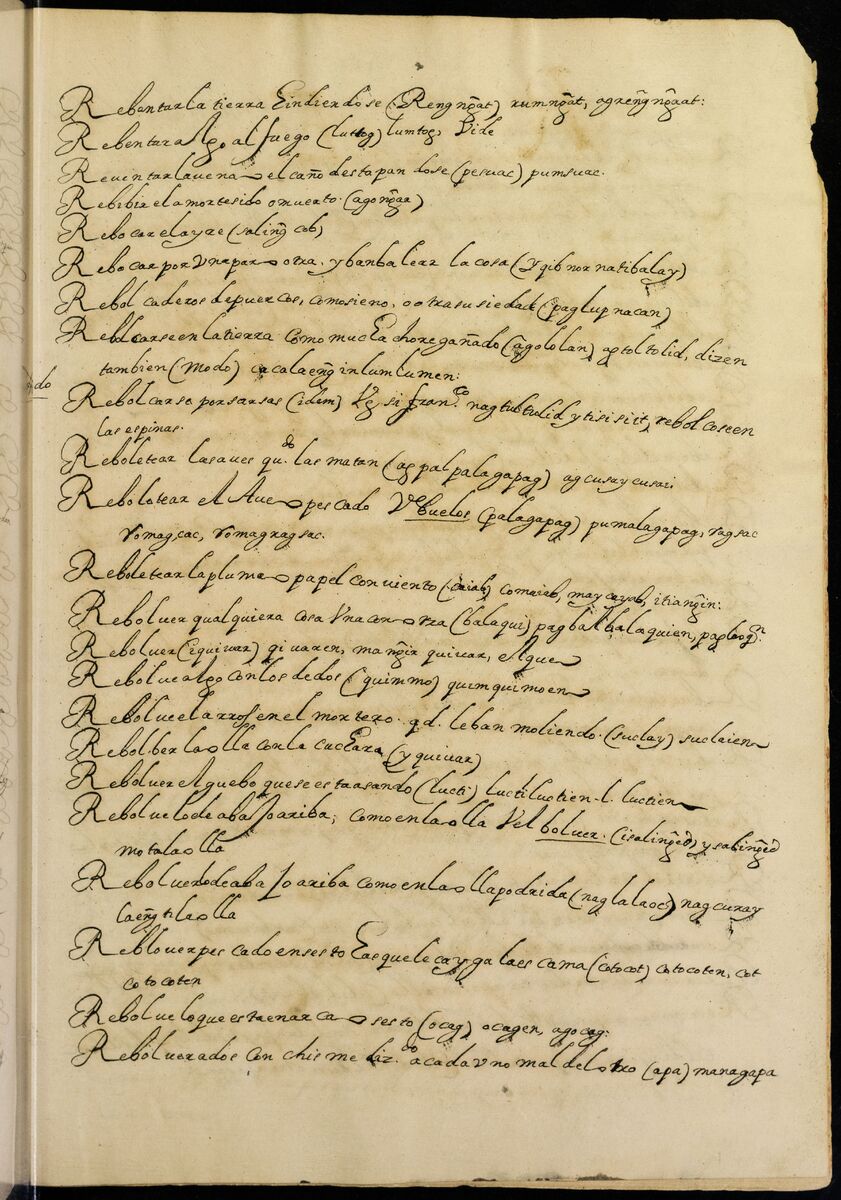 Rebentar la tierra hindiendose (Rengn̄gat) rumn̄gat, agren̄gn̄gaat:
Rebentar algo al fuego (luttog) lumtog, Vide
Reventar la vena o el caño destapandose (pesuac) pumsuac.
Rebibir el amortesido o muerto. (agon̄gar)
Rebocar el ayre (salin̄gcob)
Rebocar por vna par o otra. y banbalear la cosa (yqibnor natibalay)
Rebolcaderos de puercos, como sieno, o otra susiedad (paglupnacan)
Rebolcarse en la tierra como muchachoregañado (agololan) agtoltolid, dizen
tambien (modo) cacalaen̄g inlumlumen:
do
Rebolcarse por sarsas (idem) Vg. si franco. nagtultulid ytisisiit, rebolcose en
las espinas.
Reboletear las aves qudo. las matan (agpalpalagapag) agcusaycusai.
Rebolotear el Ave o pescado Vebuelos (palagapag) pumalagapag, ragsac
romagsac, romagragsac.
Reboletear la pluma o papel con viento (caiab) comaiab, maycayab, itian̄gin:
Reboluer qualquiera cosa vna con otra (balaqui) pagbalbalaquien,
Reboluer (iquivar) qivaren, man̄gir quivar, el que
Rebolue algo con los dedos (quimmo) quimquimoen
Rebolue el arros en el mortero. qd. leban moliendo. (suclay) suclaien
Rebolber la olla con la cuchara (yquivar)
Reboluer el guebo que se estrasando (lucti) luctiluctien. l. luctien
Reboluelo de abaxo ariba, como en la olla Vel boluer. (isalin̄ged) y salin̄ged
mo ta la olla
Reboluerlo de abaxo ariba como en la olla podrida (naglalaoc) nagcuray
laen̄g ti la olla
Reblouer pescado en sesto has que le cayga la escama (cotocot) cotocoten, cot
cotocoten
Reboluelo que esta en arca o sesto (ocag) ocagen, agocag:
Reboluer a dos con chisme dizdo. a cada vno mal del otro (apa) managapa